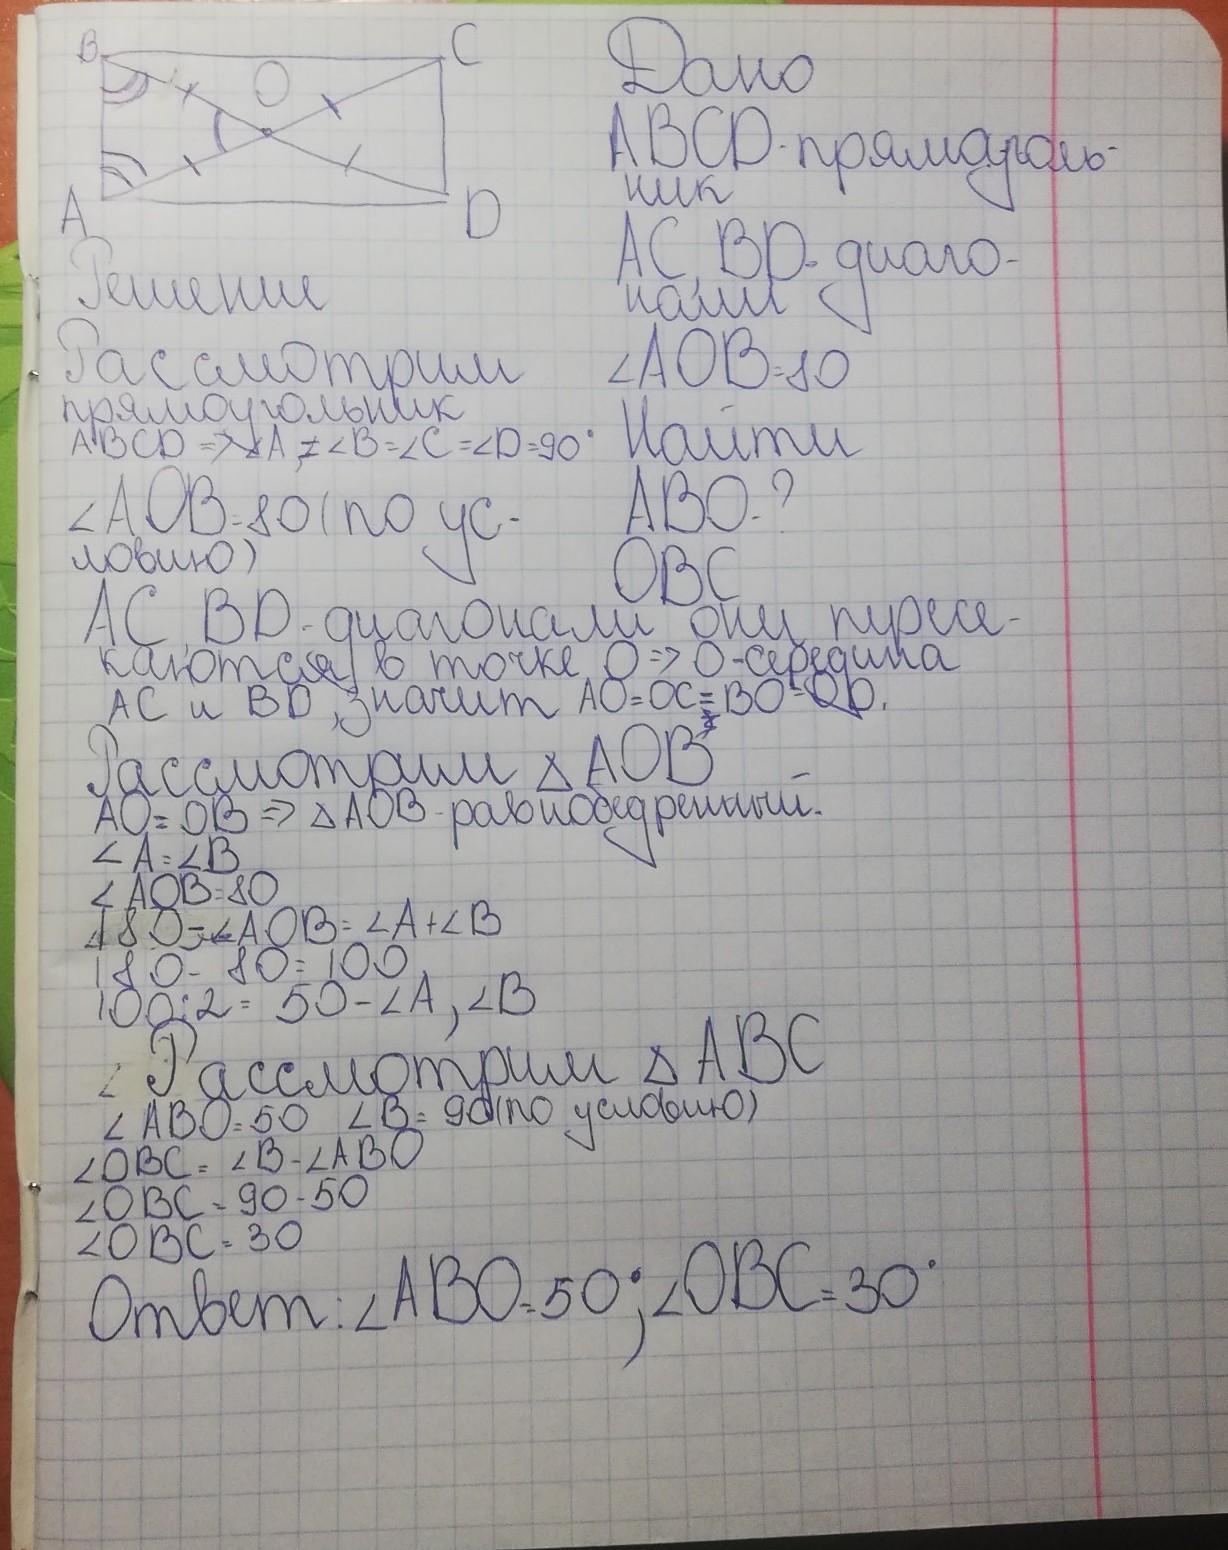 B
C
O
A
D
Дано
ABCD-прямоуголь-
ник
AC, BD-диаго-
нали
∠AOB=80
Найти
ABO-?
OBC
Решение
Рассмотрим
прямоугольник
ABCD => ∠A, = ∠B=∠C=∠D=90°
∠AOB=80(по ус-
ловию)
AC, BD-диагонали они пересе-
каются в точке O=> O-середина
AC и BD, значит AO=OC=BO=OD.
Рассмотрим △AOB
AO=OB => △AOB-равнобедренный.
∠A=∠B
∠AOB=80
180-∠AOB=∠A+∠B
180-80=100
100:2= 50-∠A, ∠B
∠ Рассмотрим △ABC
∠ABO=50 ∠B=90(по условию)
∠OBC=∠B-∠ABO
∠OBC=90-50
∠OBC=30
Ответ:∠ABO=50°;∠OBC=30°